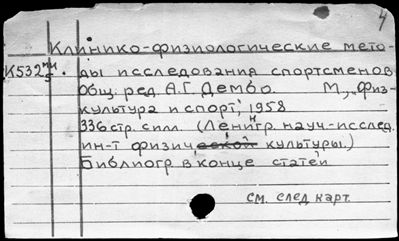 4
Клинико-физиологические мето-
К532 ми/5. ды исследования спортсменов.
Общ. ред. А.Г. Дембо. М., "Физ-
культура и спорт", 1958
336 стр. силл. (Ленингр. науч-исслед.
ин-т физической культуры.)
Библиогр. в конце статей
см. след карт.